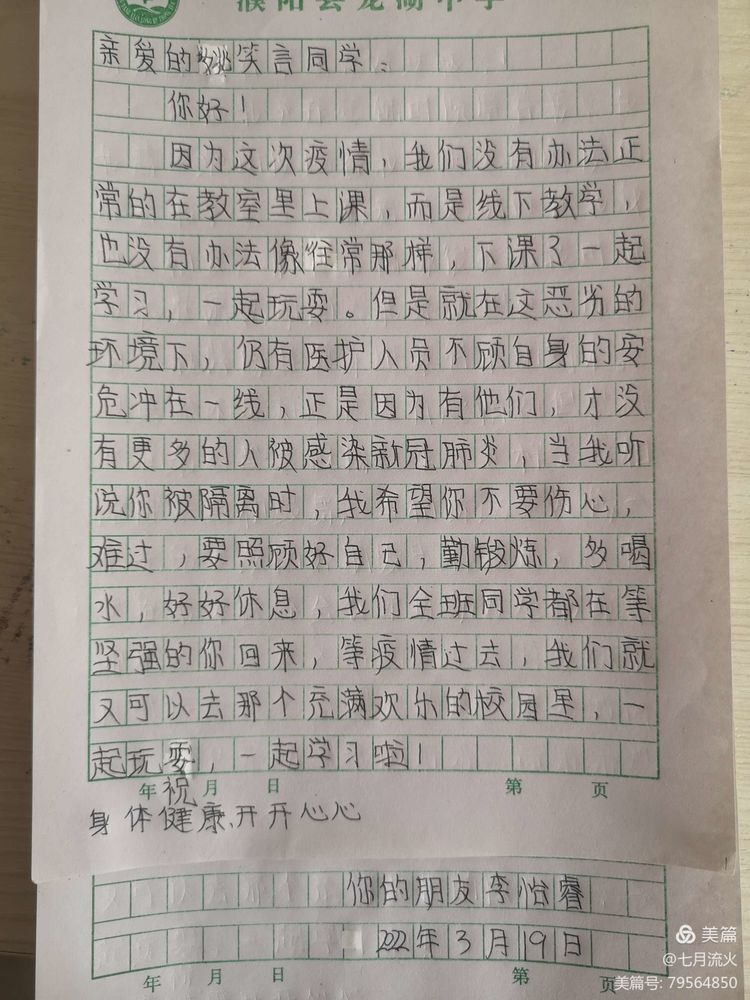 濮阳县龙湖中学
亲爱的姚笑言同学：
你好！
因为这次疫情，我们没有办法正
常的在教室里上课，而是线下教学，
也没有办法像往常那样，下课了一起
学习，一起玩耍。但是就在这恶劣的
环境下，仍有医护人员不顾自身的安
危冲在一线，正是因为有他们，才没
有更多的人被感染新冠肺炎，当我听
说你被隔离时，我希望你不要伤心，
难过，要照顾好自己，勤锻炼，多喝
水，好好休息，我们全班同学都在等
坚强的你回来，等疫情过去，我们就
又可以去那个充满欢乐的校园里，一
起玩耍，一起学习啦！
年 月 日 第 页
祝
身体健康、开开心心
你的朋友李怡睿
2022年3月19日
年 月 日 第 页
美篇
@七月流火
美篇号: 79564850